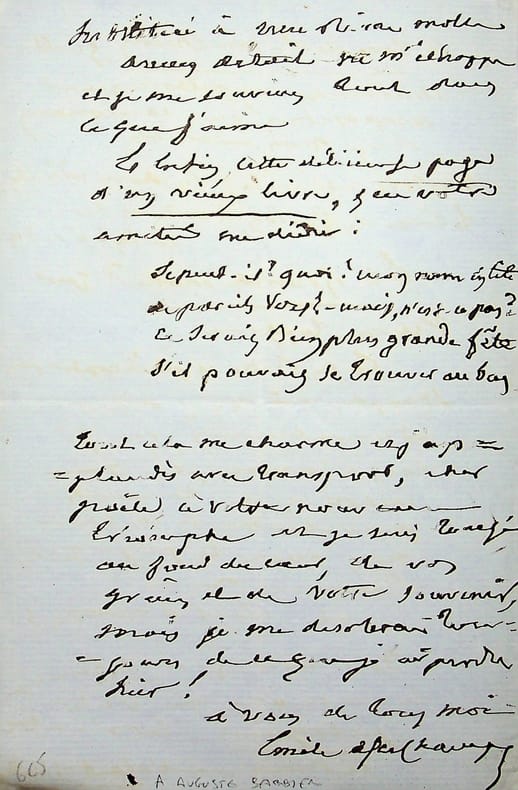 à une molle
Aucun détail ne m'échappe
et je me souviens tout
ce que j'aime
Et enfin cette délicieuse page
d'un vieux livre, que votre
amitié me dédie :
Se peut-il? quoi! mon nom en tête
de pareils vers! - mais, n'est-ce pas?
Ce serait bien plus grande fête
S'il pouvait se trouver au bas
Tout cela me charme et j'ap=
=plaudis avec transport, cher
poète à votre nouveau
triomphe et je suis touché
au fond du cœur, de vos
et de votre souvenir,
mais je me désolerai tou-
=jours de ce que j'ai perdu
hier !
à vous de tout moi
Emile Deschamps
665
A AUGUSTE BARBIER